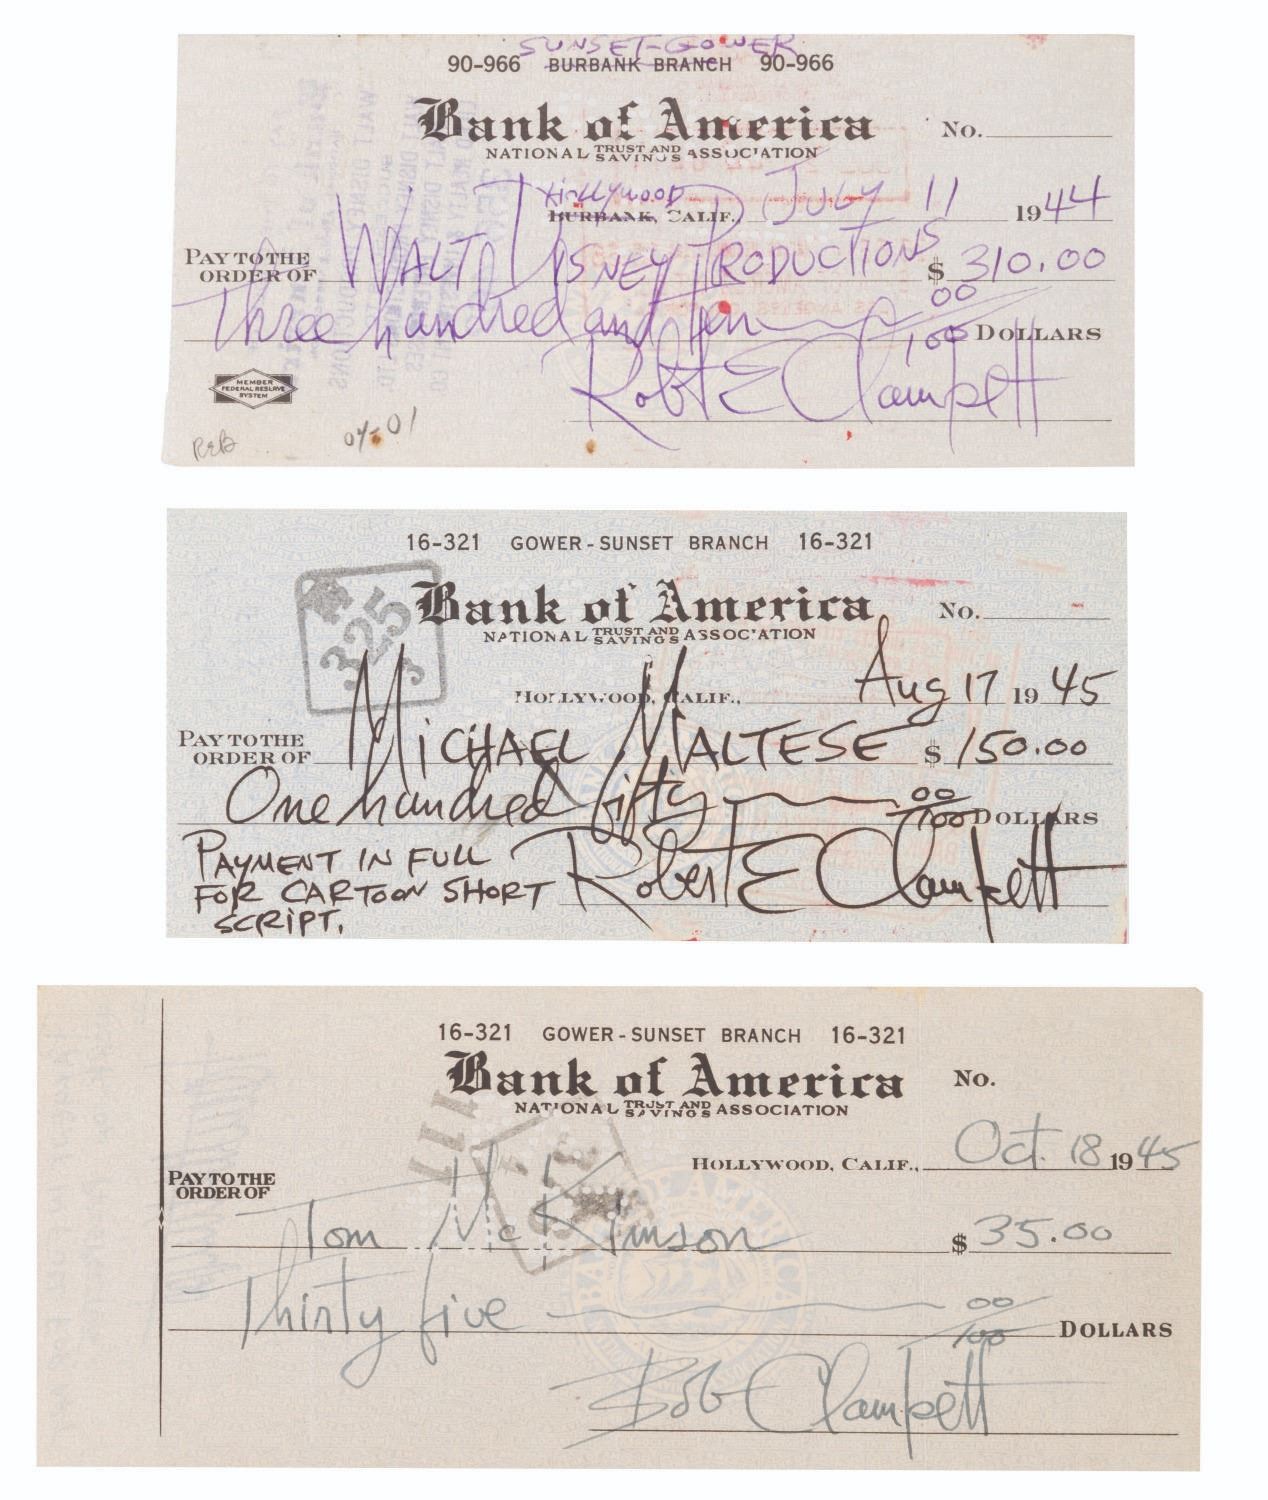 SUNSET-GOWER
90-966 BURBANK BRANCH 90-966
Bank of America No.
NATIONAL TRUST AND SAVINGS ASSOCIATION
Hollywood
BURBANK, CALIF., July 11 1944
PAY TO THE ORDER OF WALT DISNEY PRODUCTIONS $ 310.00
Three hundred and ten 00/100 DOLLARS
Robt E Clampett
MEMBER FEDERAL RESERVE SYSTEM
16-321 GOWER-SUNSET BRANCH 16-321
Bank of America No.
NATIONAL TRUST AND SAVINGS ASSOCIATION
325
3
HOLLYWOOD, CALIF., Aug 17 1945
PAY TO THE ORDER OF MICHAEL MALTESE $ 150.00
One hundred fifty 00/100 DOLLARS
PAYMENT IN FULL
FOR CARTOON SHORT
SCRIPT.
Robert E Clampett
16-321 GOWER-SUNSET BRANCH 16-321
Bank of America No.
NATIONAL TRUST AND SAVINGS ASSOCIATION
HOLLYWOOD, CALIF., Oct. 18 1945
PAY TO THE ORDER OF
Tom McKimson $ 35.00
Thirty five 00/100 DOLLARS
Bob Clampett